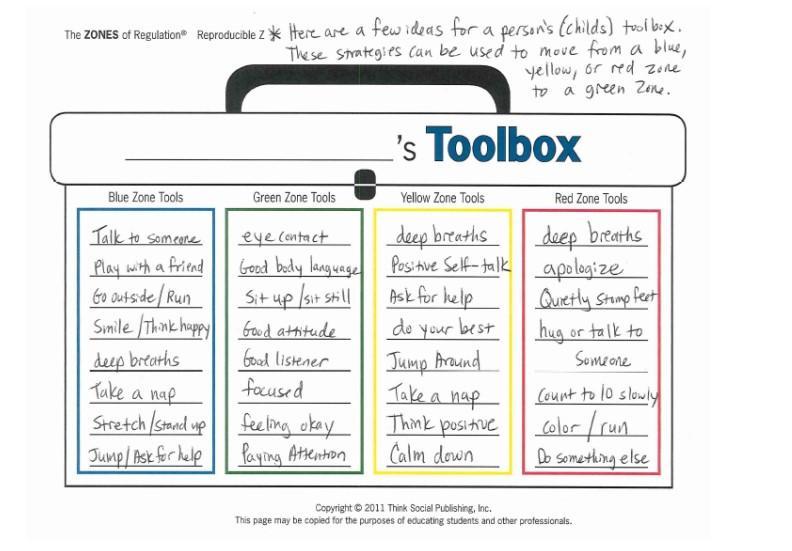 The ZONES of Regulation® Reproducible Z * Here are a few ideas for a person's (childs) toolbox.
These strategies can be used to move from a blue,
yellow, or red zone
to a green zone.
's Toolbox
Blue Zone Tools
Talk to someone
Play with a friend
Go outside/Run
Smile/Think happy
deep breaths
Take a nap
Stretch/stand up
Jump/Ask for help
Green Zone Tools
eye contact
Good body language
Sit up/sit still
Good attitude
Good listener
focused
feeling okay
Paying Attention
Yellow Zone Tools
deep breaths
Positive Self-talk
Ask for help
do your best
Jump Around
Take a nap
Think positive
Calm down
Red Zone Tools
deep breaths
apologize
Quietly stomp feet
hug or talk to
Someone
count to 10 slowly
color/run
Do something else
Copyright © 2011 Think Social Publishing, Inc.
This page may be copied for the purposes of educating students and other professionals.